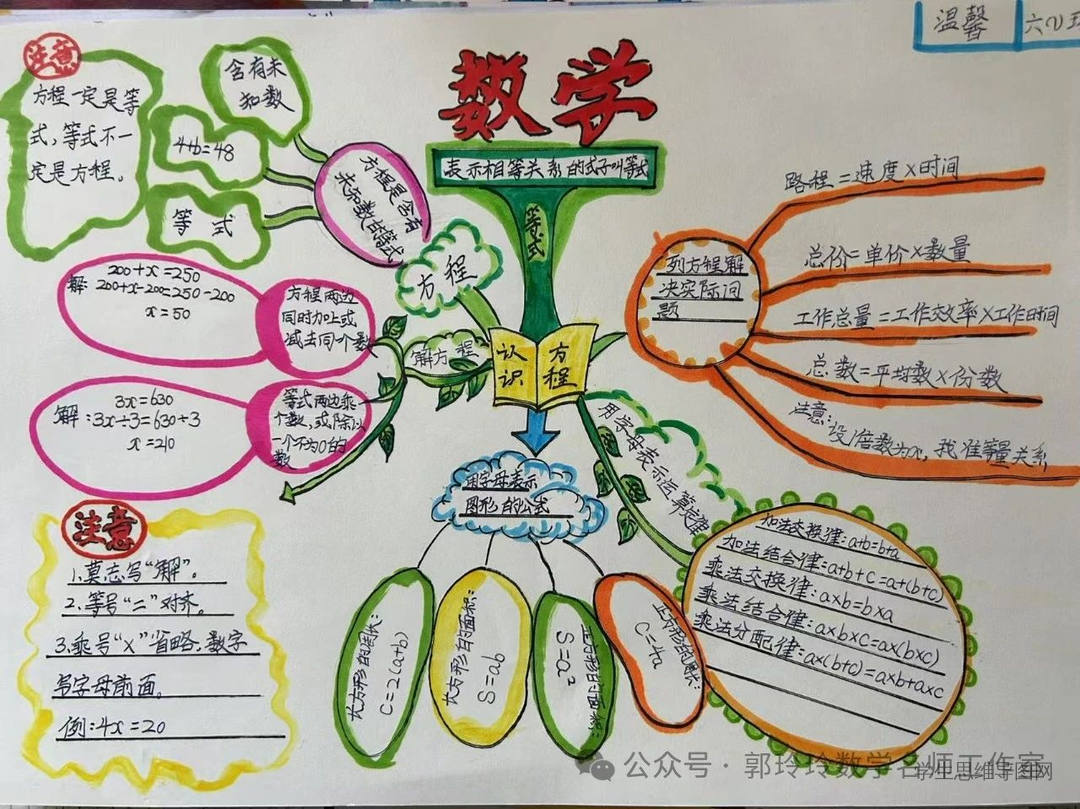 温馨
六(1)班
数学
表示相等关系的式子叫等式
等式
注意
方程一定是等
式,等式不一
定是方程。
含有未
知数
4b=48
等 式
方程是含有
未知数的等式
方程
200+x=250
解: 200+x-200=250-200
x=50
方程两边
同时加上或
减去同个数
解方程
3x=630
解:3x÷3=630÷3
x=210
等式两边乘
个数,或除以
一个不为0的
数
认识
方程
列方程解
决实际问
题
路程=速度×时间
总价=单价×数量
工作总量=工作效率×工作时间
总数=平均数×份数
注意:
设1倍数为x,找准等量关系
用字母表示运算定律
加法交换律:a+b=b+a
加法结合律:a+b+c=a+(b+c)
乘法交换律:a×b=b×a
乘法结合律:a×b×c=a×(b×c)
乘法分配律:a×(b+c)=a×b+a×c
用字母表示
图形的公式
长方形的周长:
C=2(a+b)
长方形的面积:
S=ab
正方形的面积:
S=a²
正方形的周长:
C=4a
注意
1.莫忘写“解”。
2.等号“=”对齐。
3.乘号“×”省略.数字
写字母前面。
例:4x=20
公众号·郭玲玲数学名师工作室
学生思维导图网